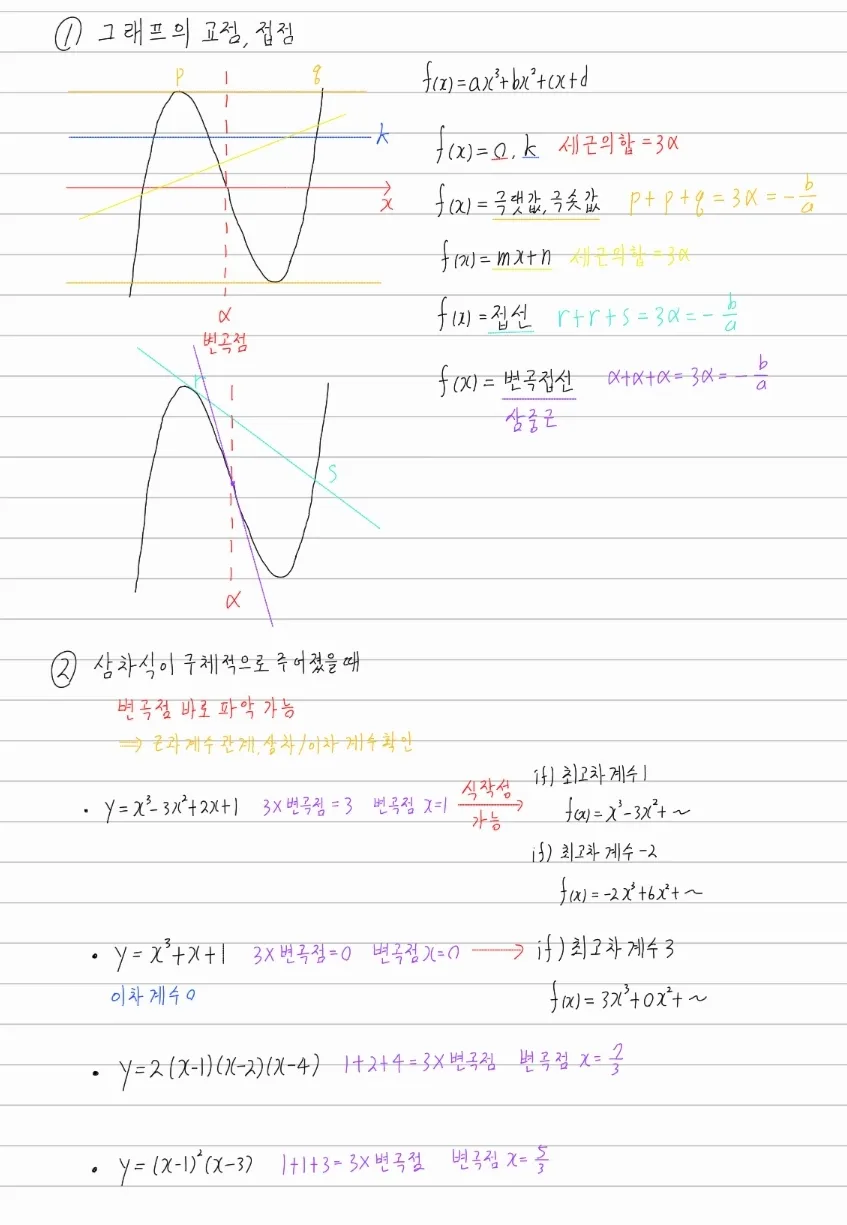 ① 그래프의 교점, 접점
p q
k
x
α
변곡점
f(x)=ax³+bx²+cx+d
f(x)=0, k 세근의합=3α
f(x)=극댓값, 극솟값 p+p+q=3α=-b/a
f(x)=mx+n 세근의합=3α
f(x)=접선 r+r+s=3α=-b/a
f(x)=변곡접선 α+α+α=3α=-b/a
삼중근
r
s
α
② 삼차식이 구체적으로 주어졌을때
변곡점 바로 파악 가능
⇒ 근과계수 관계, 삼차/이차 계수확인
· y=x³-3x²+2x+1 3×변곡점=3 변곡점 x=1 식작성 가능 → if) 최고차 계수 1
f(x)=x³-3x²+~
if) 최고차 계수 -2
f(x)=-2x³+6x²+~
· y=x³+x+1 3×변곡점=0 변곡점x=0 → if) 최고차 계수 3
이차 계수 0
f(x)=3x³+0x²+~
· y=2(x-1)(x-2)(x-4) 1+2+4=3×변곡점 변곡점 x=7/3
· y=(x-1)²(x-3) 1+1+3=3×변곡점 변곡점 x=5/3